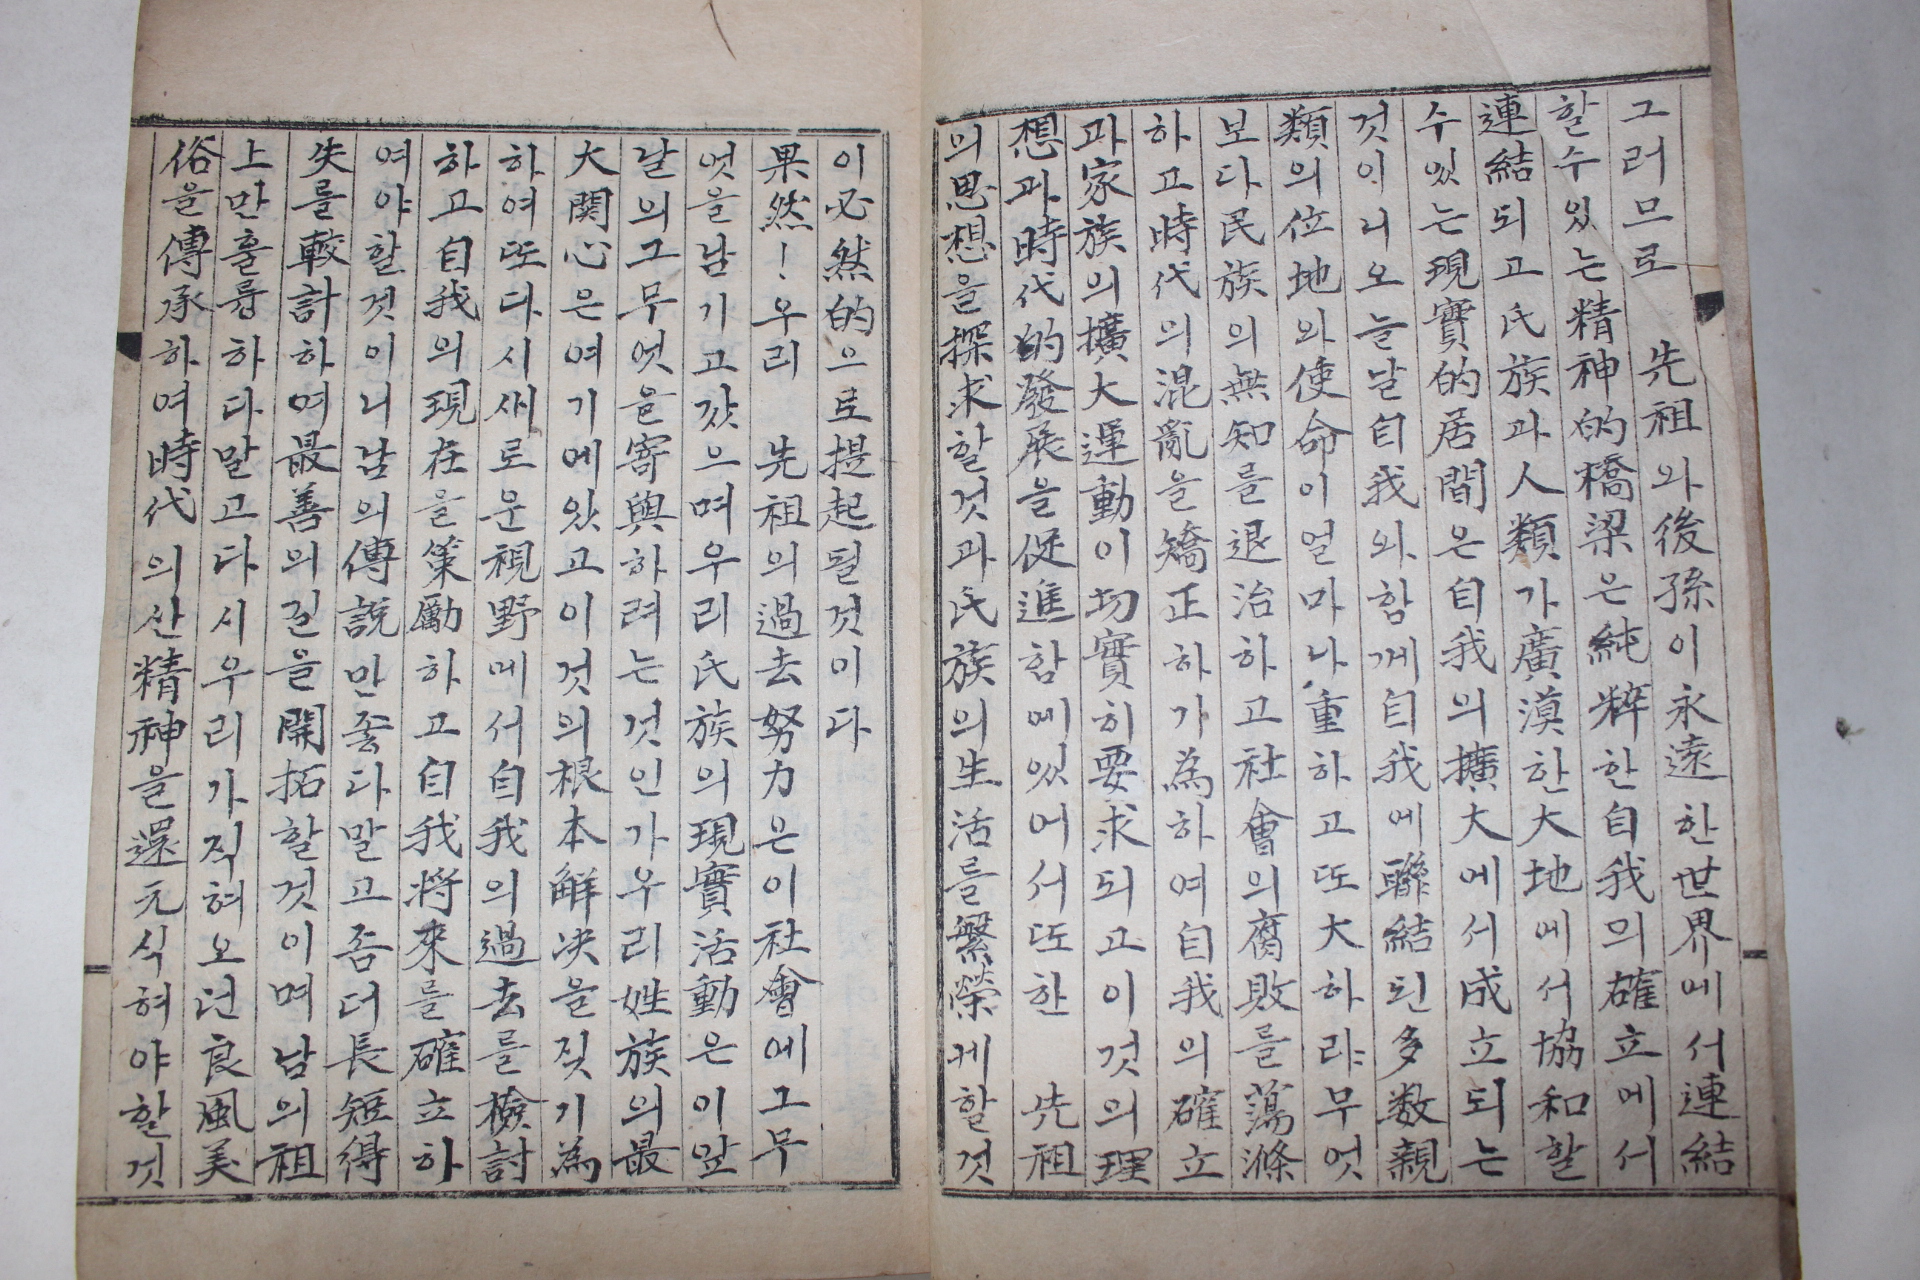 그러므로 先祖와後孫이永遠한世界에서連結
할수있는精神的橋梁은純粹한自我의確立에서
連結되고氏族과人類가廣漠한大地에서協和할
수있는現實的居間은自我의擴大에서成立되는
것이니오늘날自我와함께自我에聯結된多数親
類의位地와使命이얼마나重하고또大하랴무엇
보다民族의無知를退治하고社會의腐敗를蕩滌
하고時代의混亂을矯正하가為하여自我의確立
과家族의擴大運動이切實히要求되고이것의理
想과時代的發展을促進함에있어서또한 先祖
의思想을探求할것과氏族의生活를繁榮케할것
이必然的으로提起될것이다
果然!우리 先祖의過去努力은이社會에그무
엇을남기고갔으며우리氏族의現實活動은이앞
날의그무엇을寄與하려는것인가우리姓族의最
大関心은여기에있고이것의根本觧决을짓기為
하여또다시새로운視野에서自我의過去를檢討
하고自我의現在을策勵하고自我將來를確立하
여야할것이니남의傳說만좋다말고좀더長短得
失를較計하여最善의길을開拓할것이며남의祖
上만훌륭하다말고다시우리가직혀오던良風美
俗을傳承하여時代의산精神을還元식혀야할것